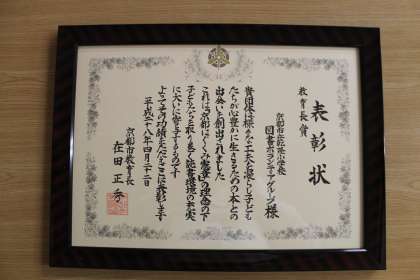 表彰状
教育長賞
京都市立乾隆小学校
図書ボランティアグループ 様
貴団体は様々な工夫を凝らし子ども
たちが心豊かに生きるための本との
出会いを創出されました
これは京都はぐくみ憲章の理念の下
子どもたちを取り巻く読書環境の充実
に大いに寄与するものです
よってその功績をたたえここに表彰します
平成二十八年四月二十二日
京都市教育長
在田正秀